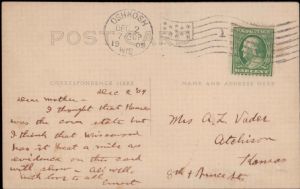 OSHKOSH
DEC 2
7 PM
1909
WIS.
POSTCARD
CORRESPONDENCE HERE
NAME AND ADDRESS HERE
Dec 2 '09
Dear Mother -
I thought that Kansas
was the corn state but
I think that Wisconsin
has it beat a mile as
evidence on this card
will show - All well.
With love to all
Ernest
Mrs A. L. Vader
Atchison
Kansas
8th &